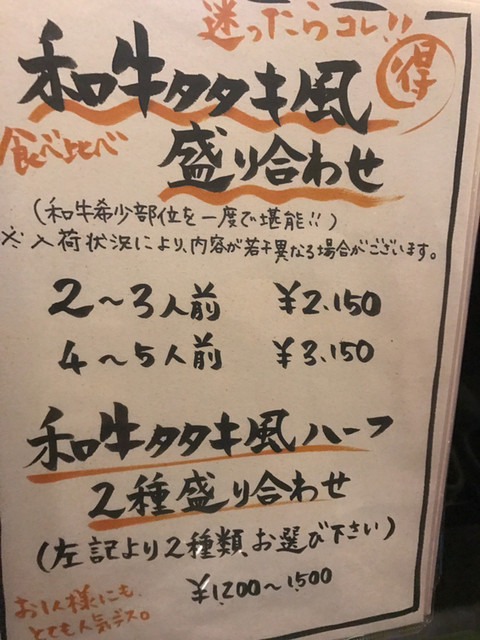 迷ったらコレ!!
得
和牛タタキ風
食べ比べ
盛り合わせ
(和牛希少部位を一度で堪能!!)
※入荷状況により、内容が若干異なる場合がございます。
2~3人前 ¥2,150
4~5人前 ¥3,150
和牛タタキ風ハーフ
2種盛り合わせ
(左記より2種類お選び下さい)
¥1200~1500
お1人様にも、
とても人気デス。